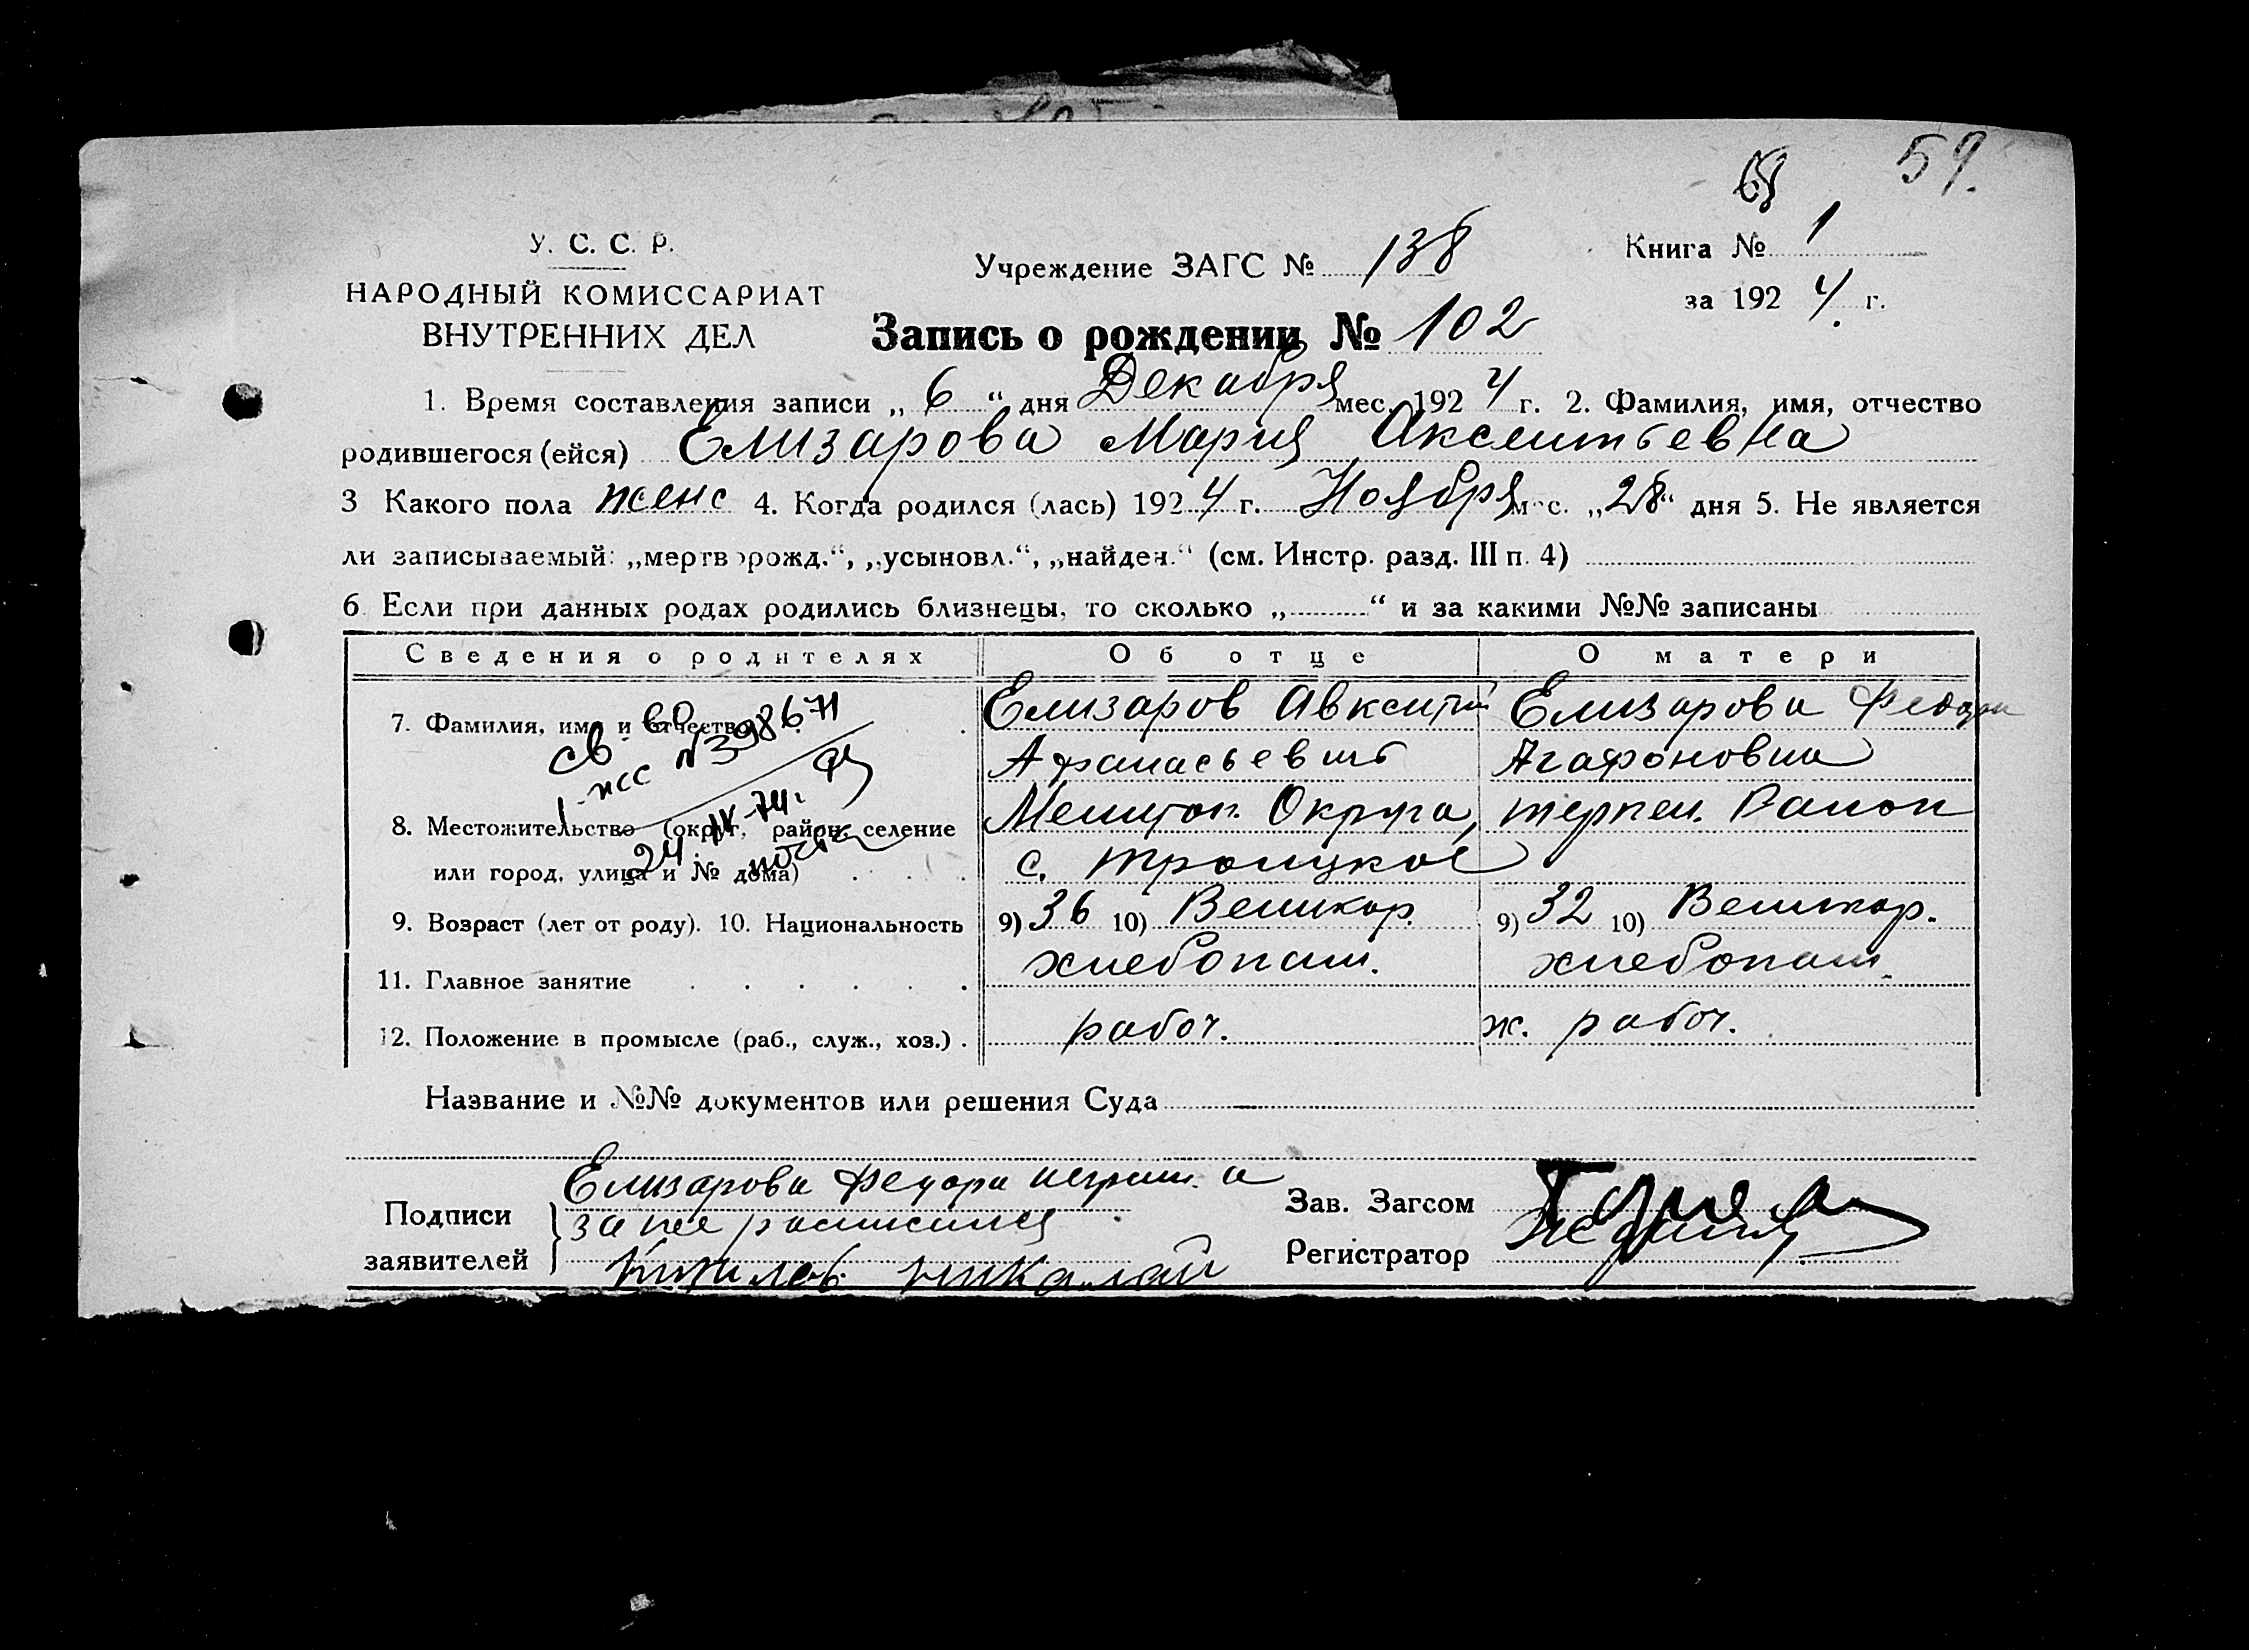 59.
68
У. С. С. Р.
НАРОДНЫЙ КОМИССАРИАТ
ВНУТРЕННИХ ДЕЛ
Учреждение ЗАГС № 138
Книга № 1
за 1924 г.
Запись о рождении № 102
1. Время составления записи „ 6 “ дня Декабря мес. 1924 г. 2. Фамилия, имя, отчество
родившегося (ейся) Елизарова Мария Аксентьевна
3 Какого пола женс 4. Когда родился (лась) 1924 г. Ноября мес. „28“ дня 5. Не является
ли записываемый: „мертворожд.“, „усыновл.“, „найден.“ (см. Инстр. разд. III п. 4)
6. Если при данных родах родились близнецы, то сколько „ “ и за какими №№ записаны
Сведения о родителях Об отце О матери
7. Фамилия, имя и отчество Елизаров Авксентий Елизарова Федора
Афанасьевич Агафоновна
св. во
1-жс №398671
24 IV-74г.
8. Местожительство (округ, район, селение Мелитоп. Округа, терпен. Район
или город, улица и № дома) с. Троицкое
9. Возраст (лет от роду). 10. Национальность 9) 36 10) Великор. 9) 32 10) Великор.
11. Главное занятие хлебопаш. хлебопаш.
12. Положение в промысле (раб., служ., хоз.) рабоч. ж. рабоч.
Название и №№ документов или решения Суда
Подписи
заявителей
Елизарова Федора неграм. а
за нее расписался
николай
Зав. Загсом
Регистратор